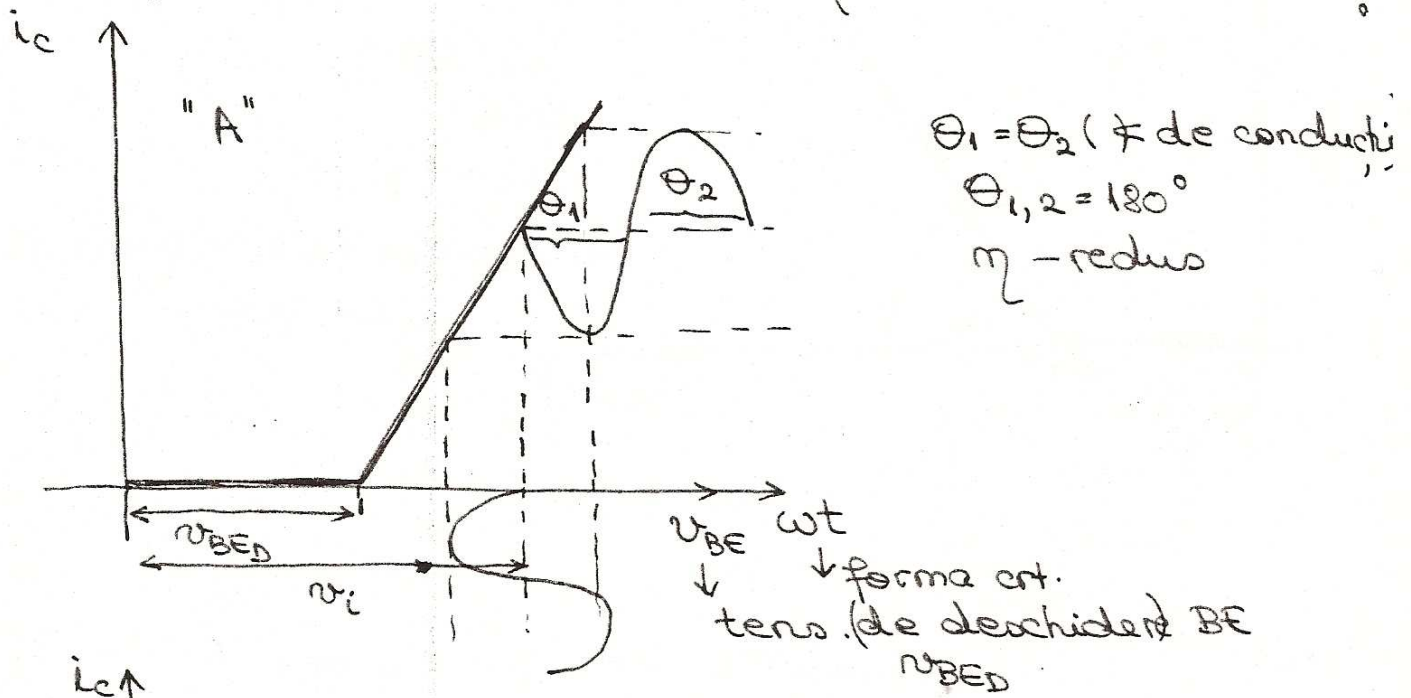 i_c
"A"
θ₁ = θ₂ (∢ de conducți
θ₁,₂ = 180°
η - redus
θ₁
θ₂
v_BE_D
v_i
v_BE
ωt
↓ ↓ forma crt.
tens. (de deschidere) BE
v_BE_D
i_c